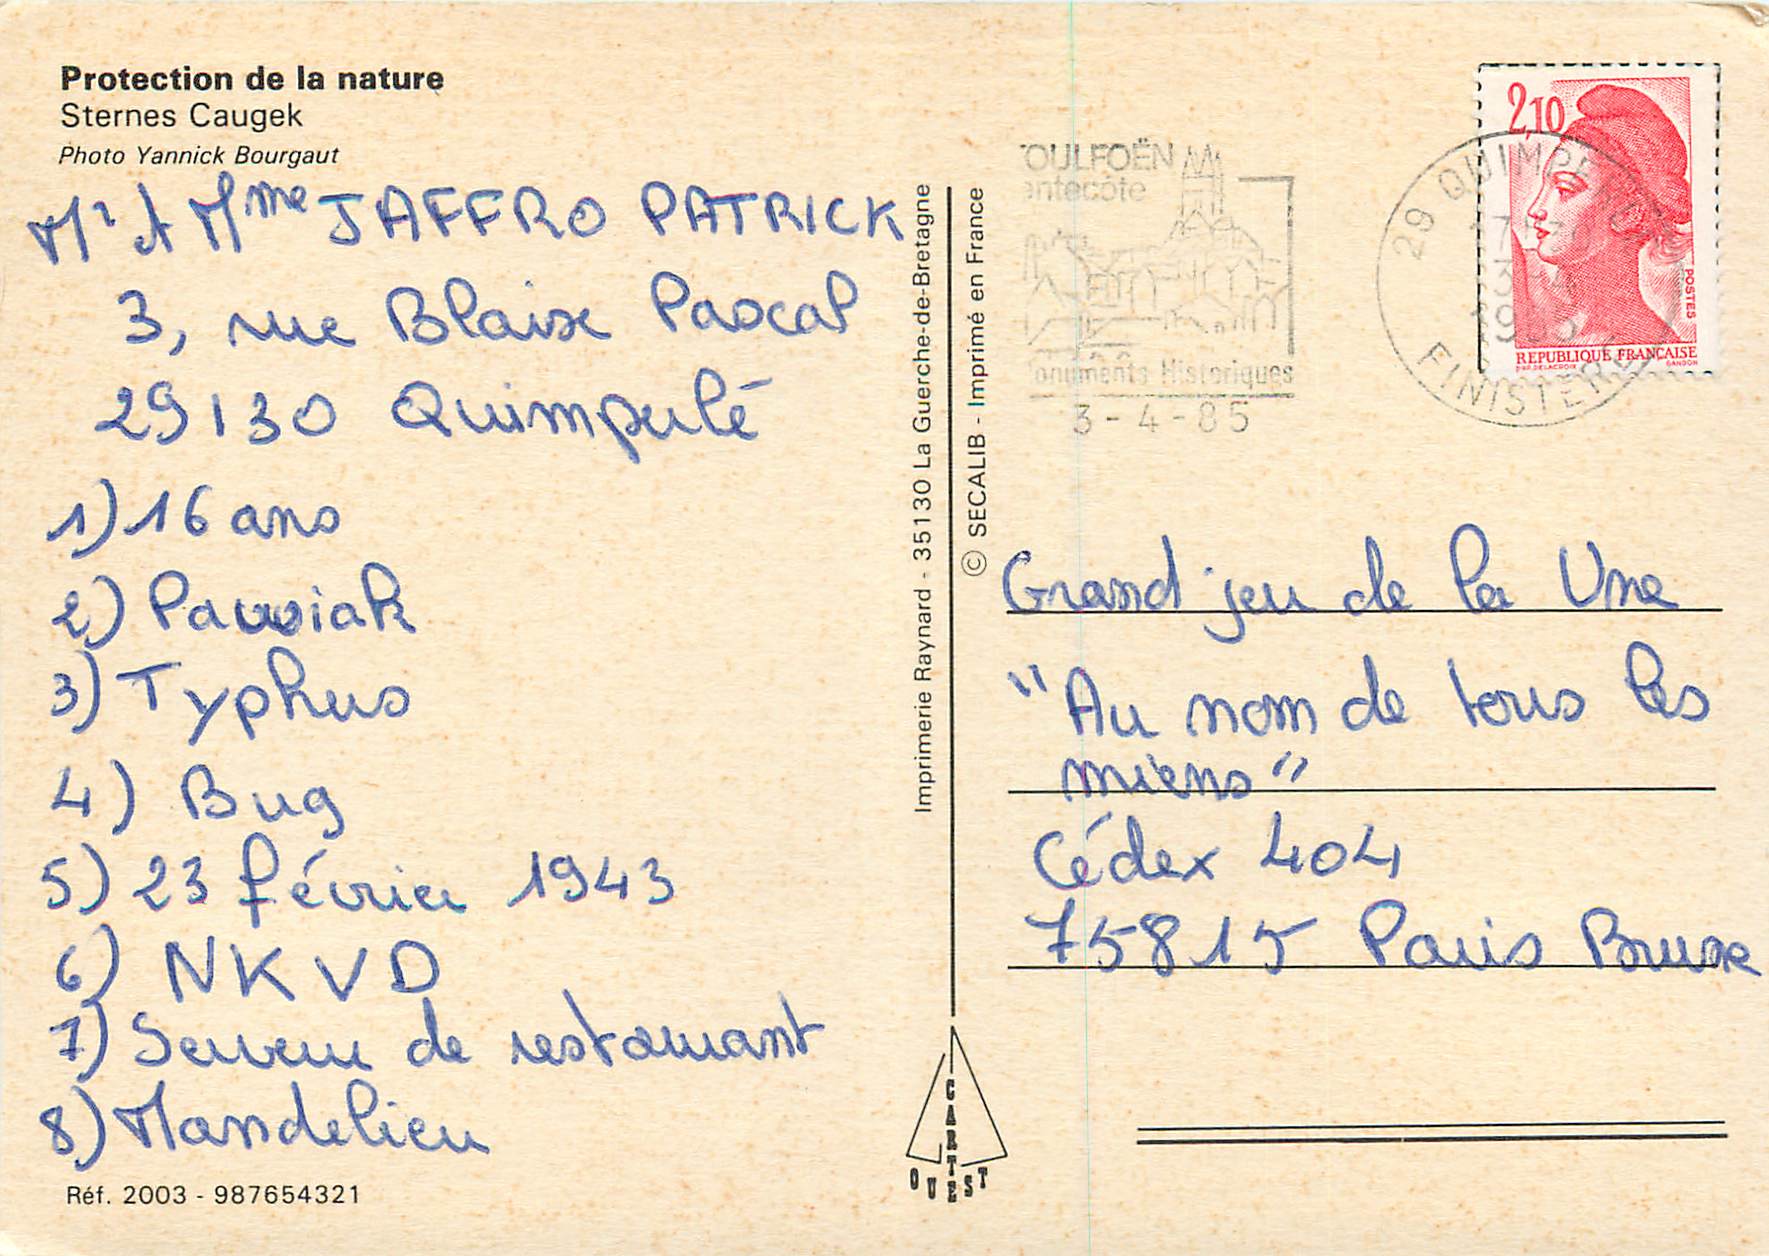 Protection de la nature
Sternes Caugek
Photo Yannick Bourgaut
Mr et Mme JAFFRO PATRICK
3, rue Blaise Pascal
29130 Quimperlé
1) 16 ans
2) Pawiak
3) Typhus
4) Bug
5) 23 février 1943
6) NKVD
7) Serveur de restaurant
8) Mandelieu
Réf. 2003 - 987654321
Imprimerie Raynard - 35130 La Guerche-de-Bretagne
© SECALIB - Imprimé en France
CARTES
OUEST
OULFOËN
entecôte
onuments Historiques
3-4-85
29 QUIMPERLE
3-4
1985
FINISTERE
2,10
POSTES
REPUBLIQUE FRANÇAISE
D'AP. DELACROIX GANDON
Grand jeu de la Une
"Au nom de tous les
miens"
Cédex 404
75815 Paris Brune